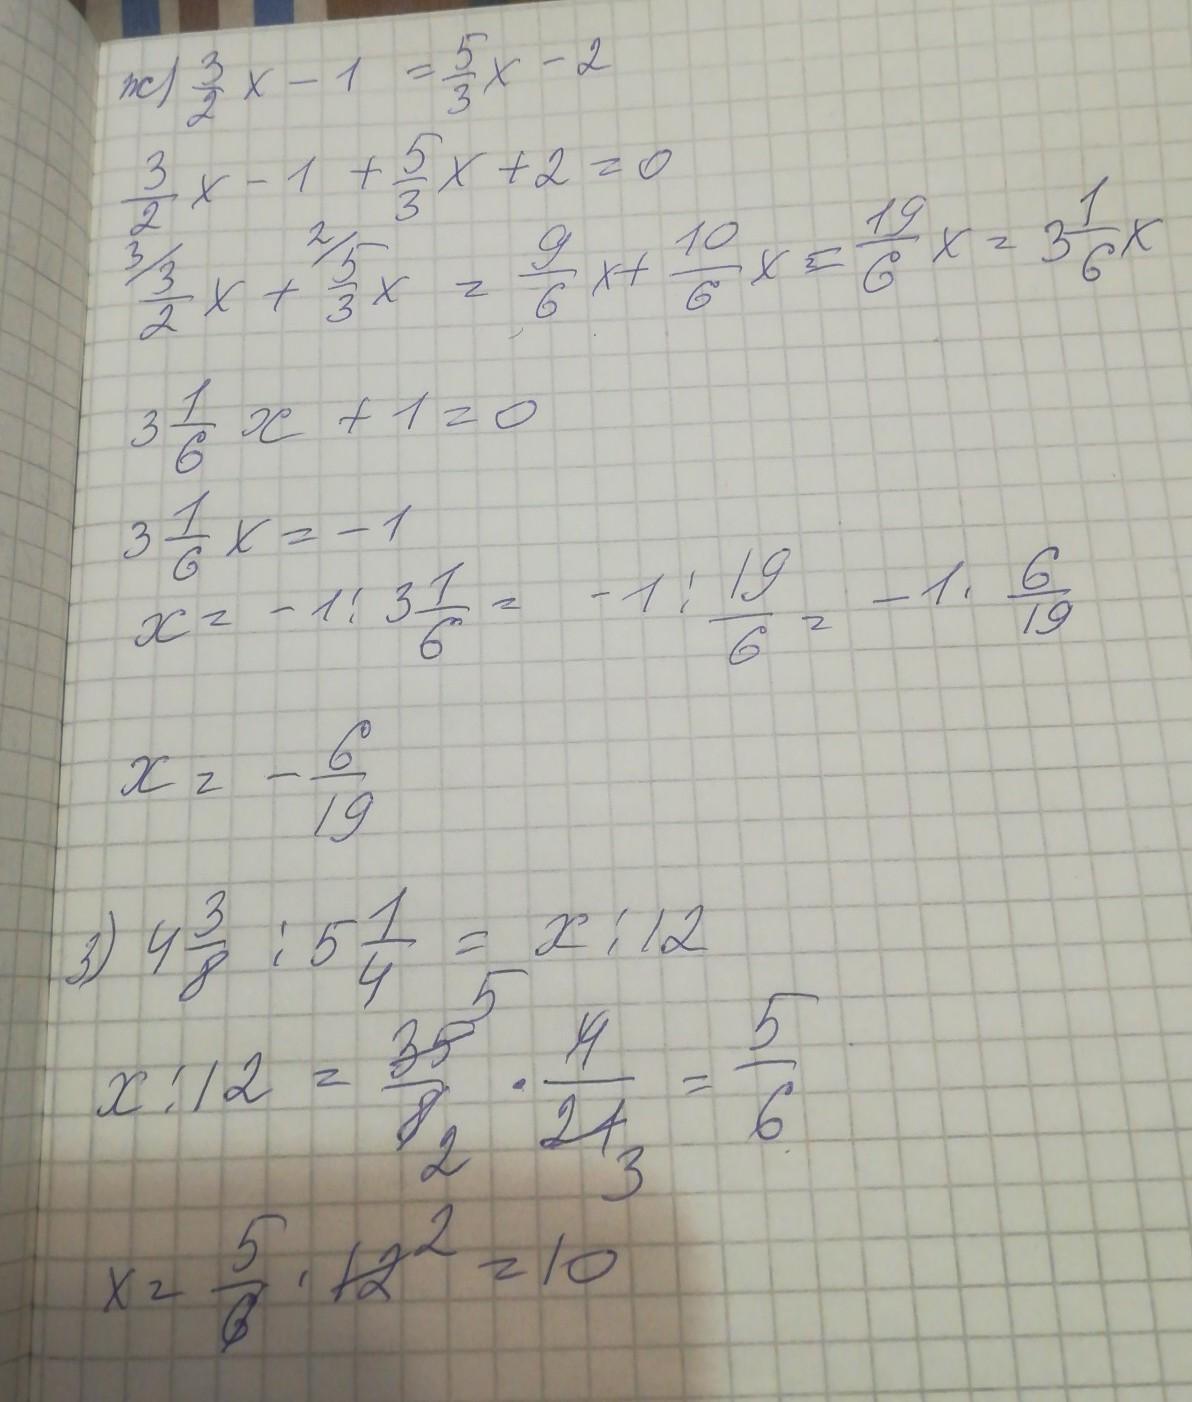 ж) 3/2 x - 1 = 5/3 x - 2
3/2 x - 1 + 5/3 x + 2 = 0
3/ 3/2 x + 2/ 5/3 x = 9/6 x + 10/6 x = 19/6 x = 3 1/6 x
3 1/6 x + 1 = 0
3 1/6 x = - 1
x = - 1 : 3 1/6 = - 1 : 19/6 = - 1 · 6/19
x = - 6/19
з) 4 3/8 : 5 1/4 = x : 12
x : 12 = 35 5/8 2 · 4/21 3 = 5/6
x = 5/6 · 12 2 = 10